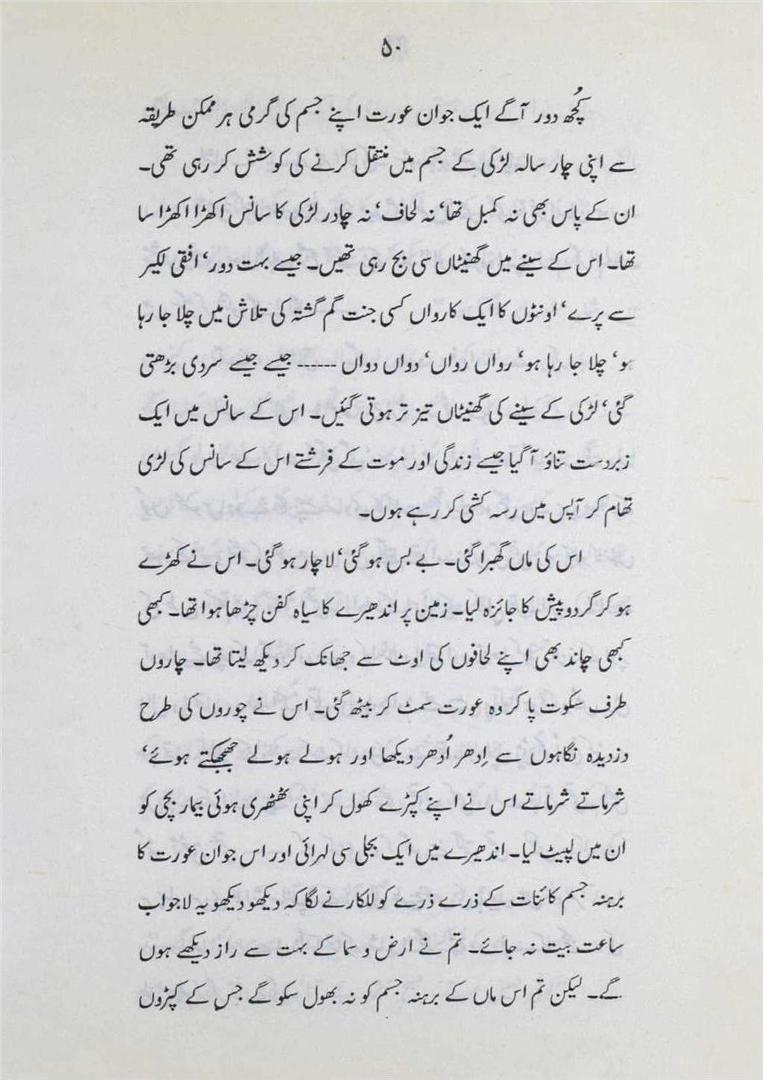 ۵۰
کُچھ دور آگے ایک جوان عورت اپنے جسم کی گرمی ہر ممکن طریقہ
سے اپنی چار سالہ لڑکی کے جسم میں منتقل کرنے کی کوشش کر رہی تھی۔
ان کے پاس بھی نہ کمبل تھا‘ نہ لحاف‘ نہ چادر لڑکی کا سانس اکھڑا اکھڑا سا
تھا۔ اس کے سینے میں گھنیٹاں سی بج رہی تھیں۔ جیسے بہت دور‘ افقی لکیر
سے پرے‘ اونٹوں کا ایک کارواں کسی جنت گم گشتہ کی تلاش میں چلا جا رہا
ہو‘ چلا جا رہا ہو‘ رواں رواں‘ دواں دواں ------ جیسے جیسے سردی بڑھتی
گئی‘ لڑکی کے سینے کی گھنیٹاں تیز تر ہوتی گئیں۔ اس کے سانس میں ایک
زبردست تناؤ آ گیا جیسے زندگی اور موت کے فرشتے اس کے سانس کی لڑی
تھام کر آپس میں رسہ کشی کر رہے ہوں۔
اس کی ماں گھبرا گئی۔ بے بس ہو گئی‘ لاچار ہو گئی۔ اس نے کھڑے
ہو کر گردوپیش کا جائزہ لیا۔ زمین پر اندھیرے کا سیاہ کفن چڑھا ہوا تھا۔ کبھی
کبھی چاند بھی اپنے لحافوں کی اوٹ سے جھانک کر دیکھ لیتا تھا۔ چاروں
طرف سکوت پا کر وہ عورت سمٹ کر بیٹھ گئی۔ اس نے چوروں کی طرح
دزدیدہ نگاہوں سے اِدھر اُدھر دیکھا اور ہولے ہولے جھجکتے ہوئے‘
شرماتے شرماتے اس نے اپنے کپڑے کھول کر اپنی ٹھٹھری ہوئی بیمار بچی کو
ان میں لپیٹ لیا۔ اندھیرے میں ایک بجلی سی لہرائی اور اس جوان عورت کا
برہنہ جسم کائنات کے ذرے ذرے کو للکارنے لگا کہ دیکھو دیکھو یہ لاجواب
ساعت بیت نہ جائے۔ تم نے ارض و سما کے بہت سے راز دیکھے ہوں
گے۔ لیکن تم اس ماں کے برہنہ جسم کو نہ بھول سکو گے جس کے کپڑوں